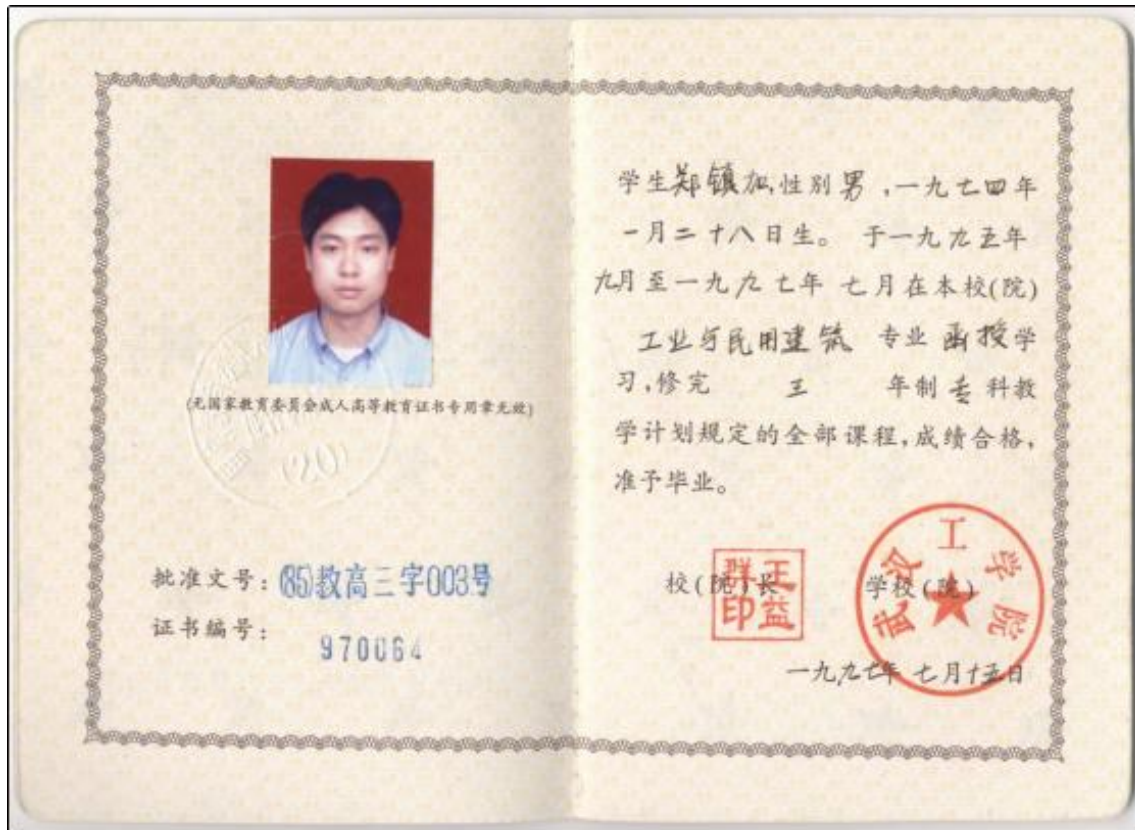 (无国家教育委员会成人高等教育证书专用章无效)
(20)
批准文号：(85)教高三字003号
证书编号：
970064
学生郑镇加,性别男,一九七四年
一月二十八日生。 于一九九五年
九月至一九九七年 七月在本校(院)
工业与民用建筑 专业 函授学
习,修完 三 年制专科教
学计划规定的全部课程,成绩合格,
准予毕业。
校(院)长
王益群印
学校(院)
武汉工学院
一九九七年 七月十五日